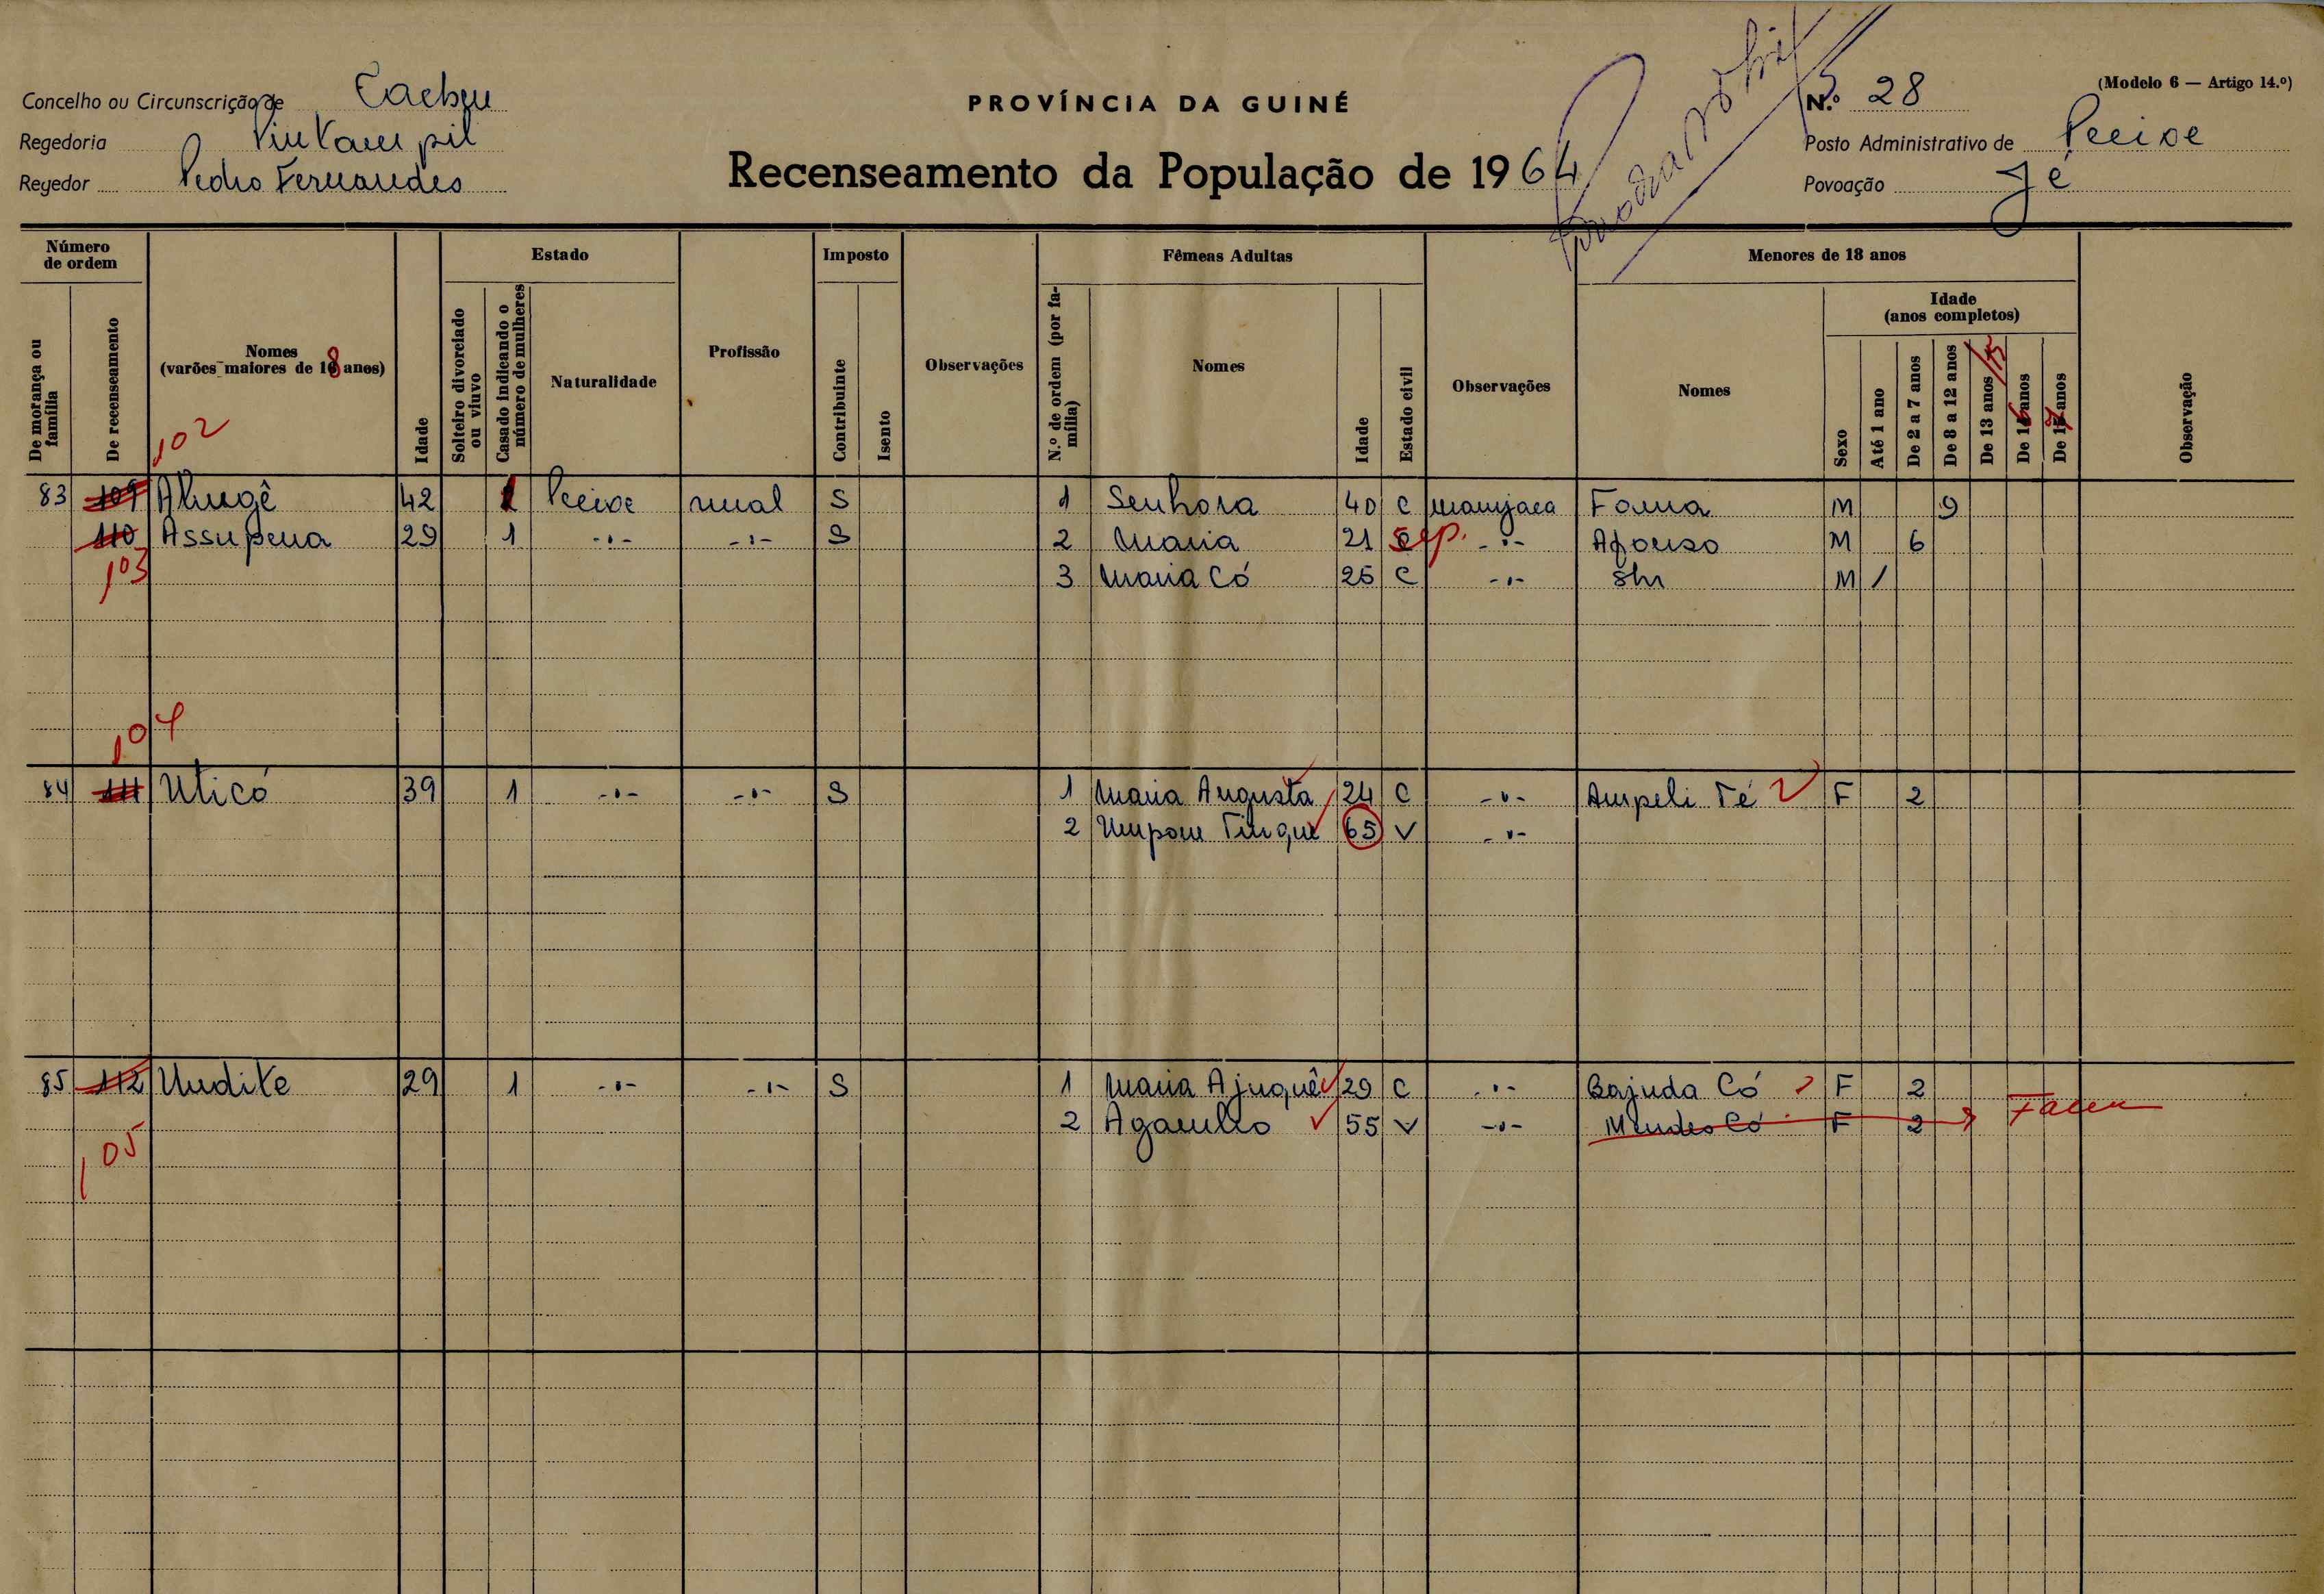 Concelho ou Circunscrição de Cacheu
Regedoria
Regedor Pedro Fernandes
PROVÍNCIA DA GUINÉ
Recenseamento da População de 1964
(Modelo 6 — Artigo 14.º)
N.º 28
Posto Administrativo de Pecixe
Povoação Jé
Número de ordem
De morança ou família
De recenseamento
Nomes
(varões maiores de 18 anos)
Idade
Estado
Solteiro divorciado ou viuvo
Casado indicando o número de mulheres
Naturalidade
Profissão
Imposto
Contribuinte
Isento
Observações
Fêmeas Adultas
N.º de ordem (por família)
Nomes
Idade
Estado civil
Observações
Menores de 18 anos
Nomes
Sexo
Idade
(anos completos)
Até 1 ano
De 2 a 7 anos
De 8 a 12 anos
De 13 anos /15
De 16 anos
De 17 anos
Observação
102
83 109 42 1 Pecixe rural S 1 Senhora 40 C manjaca Fama M 9
110 Assupena 29 1 -"- -"- S 2 Maria 21 sep. -"- Afonso M 6
103 3 Maria Có 25 C -"- Shr M /
104
84 111 Uticó 39 1 -"- -"- S 1 Maria Augusta 24 C -"- Ampeli Té F 2
2 Umpom Tingue 65 V -"-
85 112 Undike 29 1 -"- -"- S 1 Maria Ajuquê 29 C -"- Bajuda Có F 2
105 2 55 V -"- Mendes Có F 2